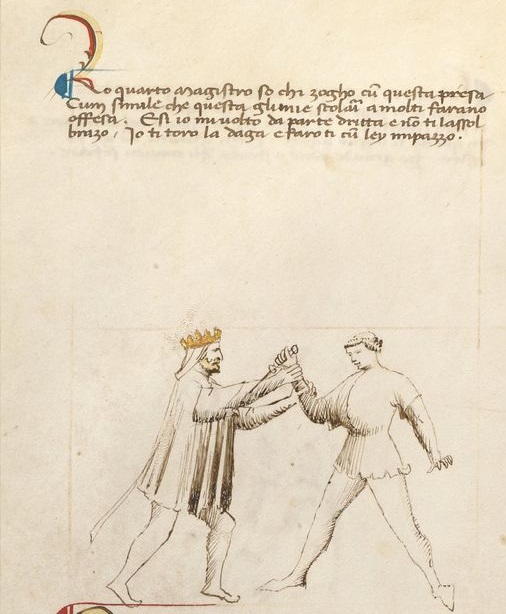 Lo quarto Magistro so chi zogho cũ questa presa
Cum simile che questa gli mie scolari a molti farano
offesa. E si io mi volto da parte dritta e nõ ti lasso l
brazo, Io ti toro la daga e faroti cũ ley impazzo.